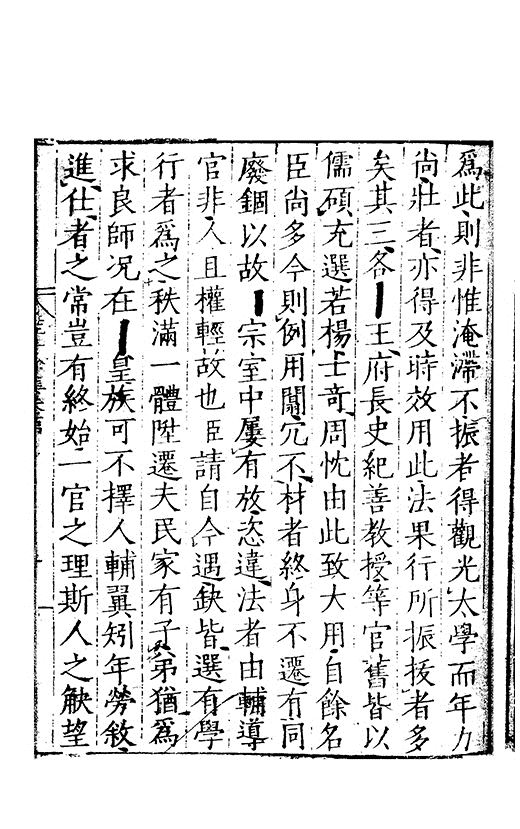 爲此則非惟淹滯不振者得觀光太學而年力
尚壯者亦得及時效用此法果行所振拔者多
矣其三各王府長史紀善教授等官舊皆以
儒碩充選若楊士奇周忱由此致大用自餘名
臣尚多今則例用闒冗不材者終身不遷有同
廢錮以故宗室中屢有放恣違法者由輔導
官非人且權輕故也臣請自今遇缺皆選有學
行者爲之秩滿一體陞遷夫民家有子弟猶爲
求良師况在皇族可不擇人輔翼矧年勞敘
進仕者之常豈有終始一官之理斯人之觖望